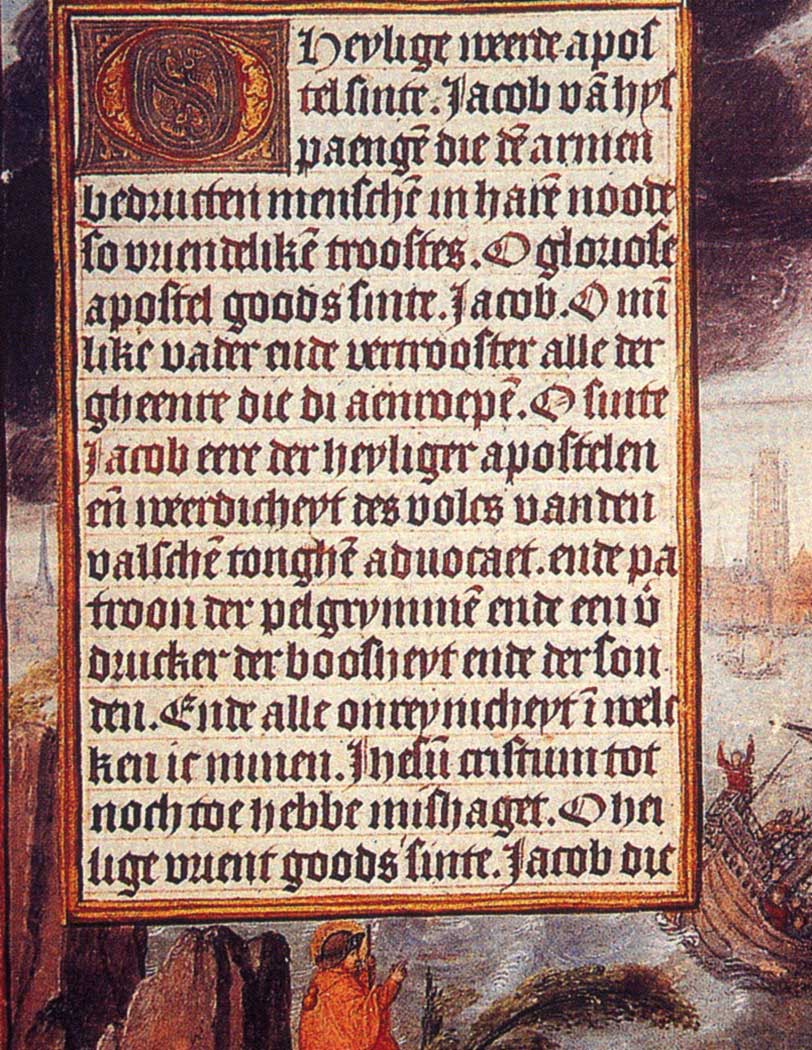 O Heylige weerde apos
tel sinte. Jacob vā hys
paengē die dē armen
bedructen menschē in harē noode
so vriendelikē troostes. O gloriose
apostel goods sinte. Jacob. O mī
like vader ende vertrooster alle der
gheenre die di aenroepē. O sinte
Jacob eere der heyliger apostelen
eñ weerdicheyt des volcs vanden
valschē tonghē aduocaet. ende pa
troon der pelgrymmē ende een v̄
drucker der boosheyt ende der son
den. Ende alle onreynicheyt ī welc
ken ic minen. Jhesū cristum tot
noch toe hebbe mishaget. O hei
lige vrient goods sinte. Jacob die